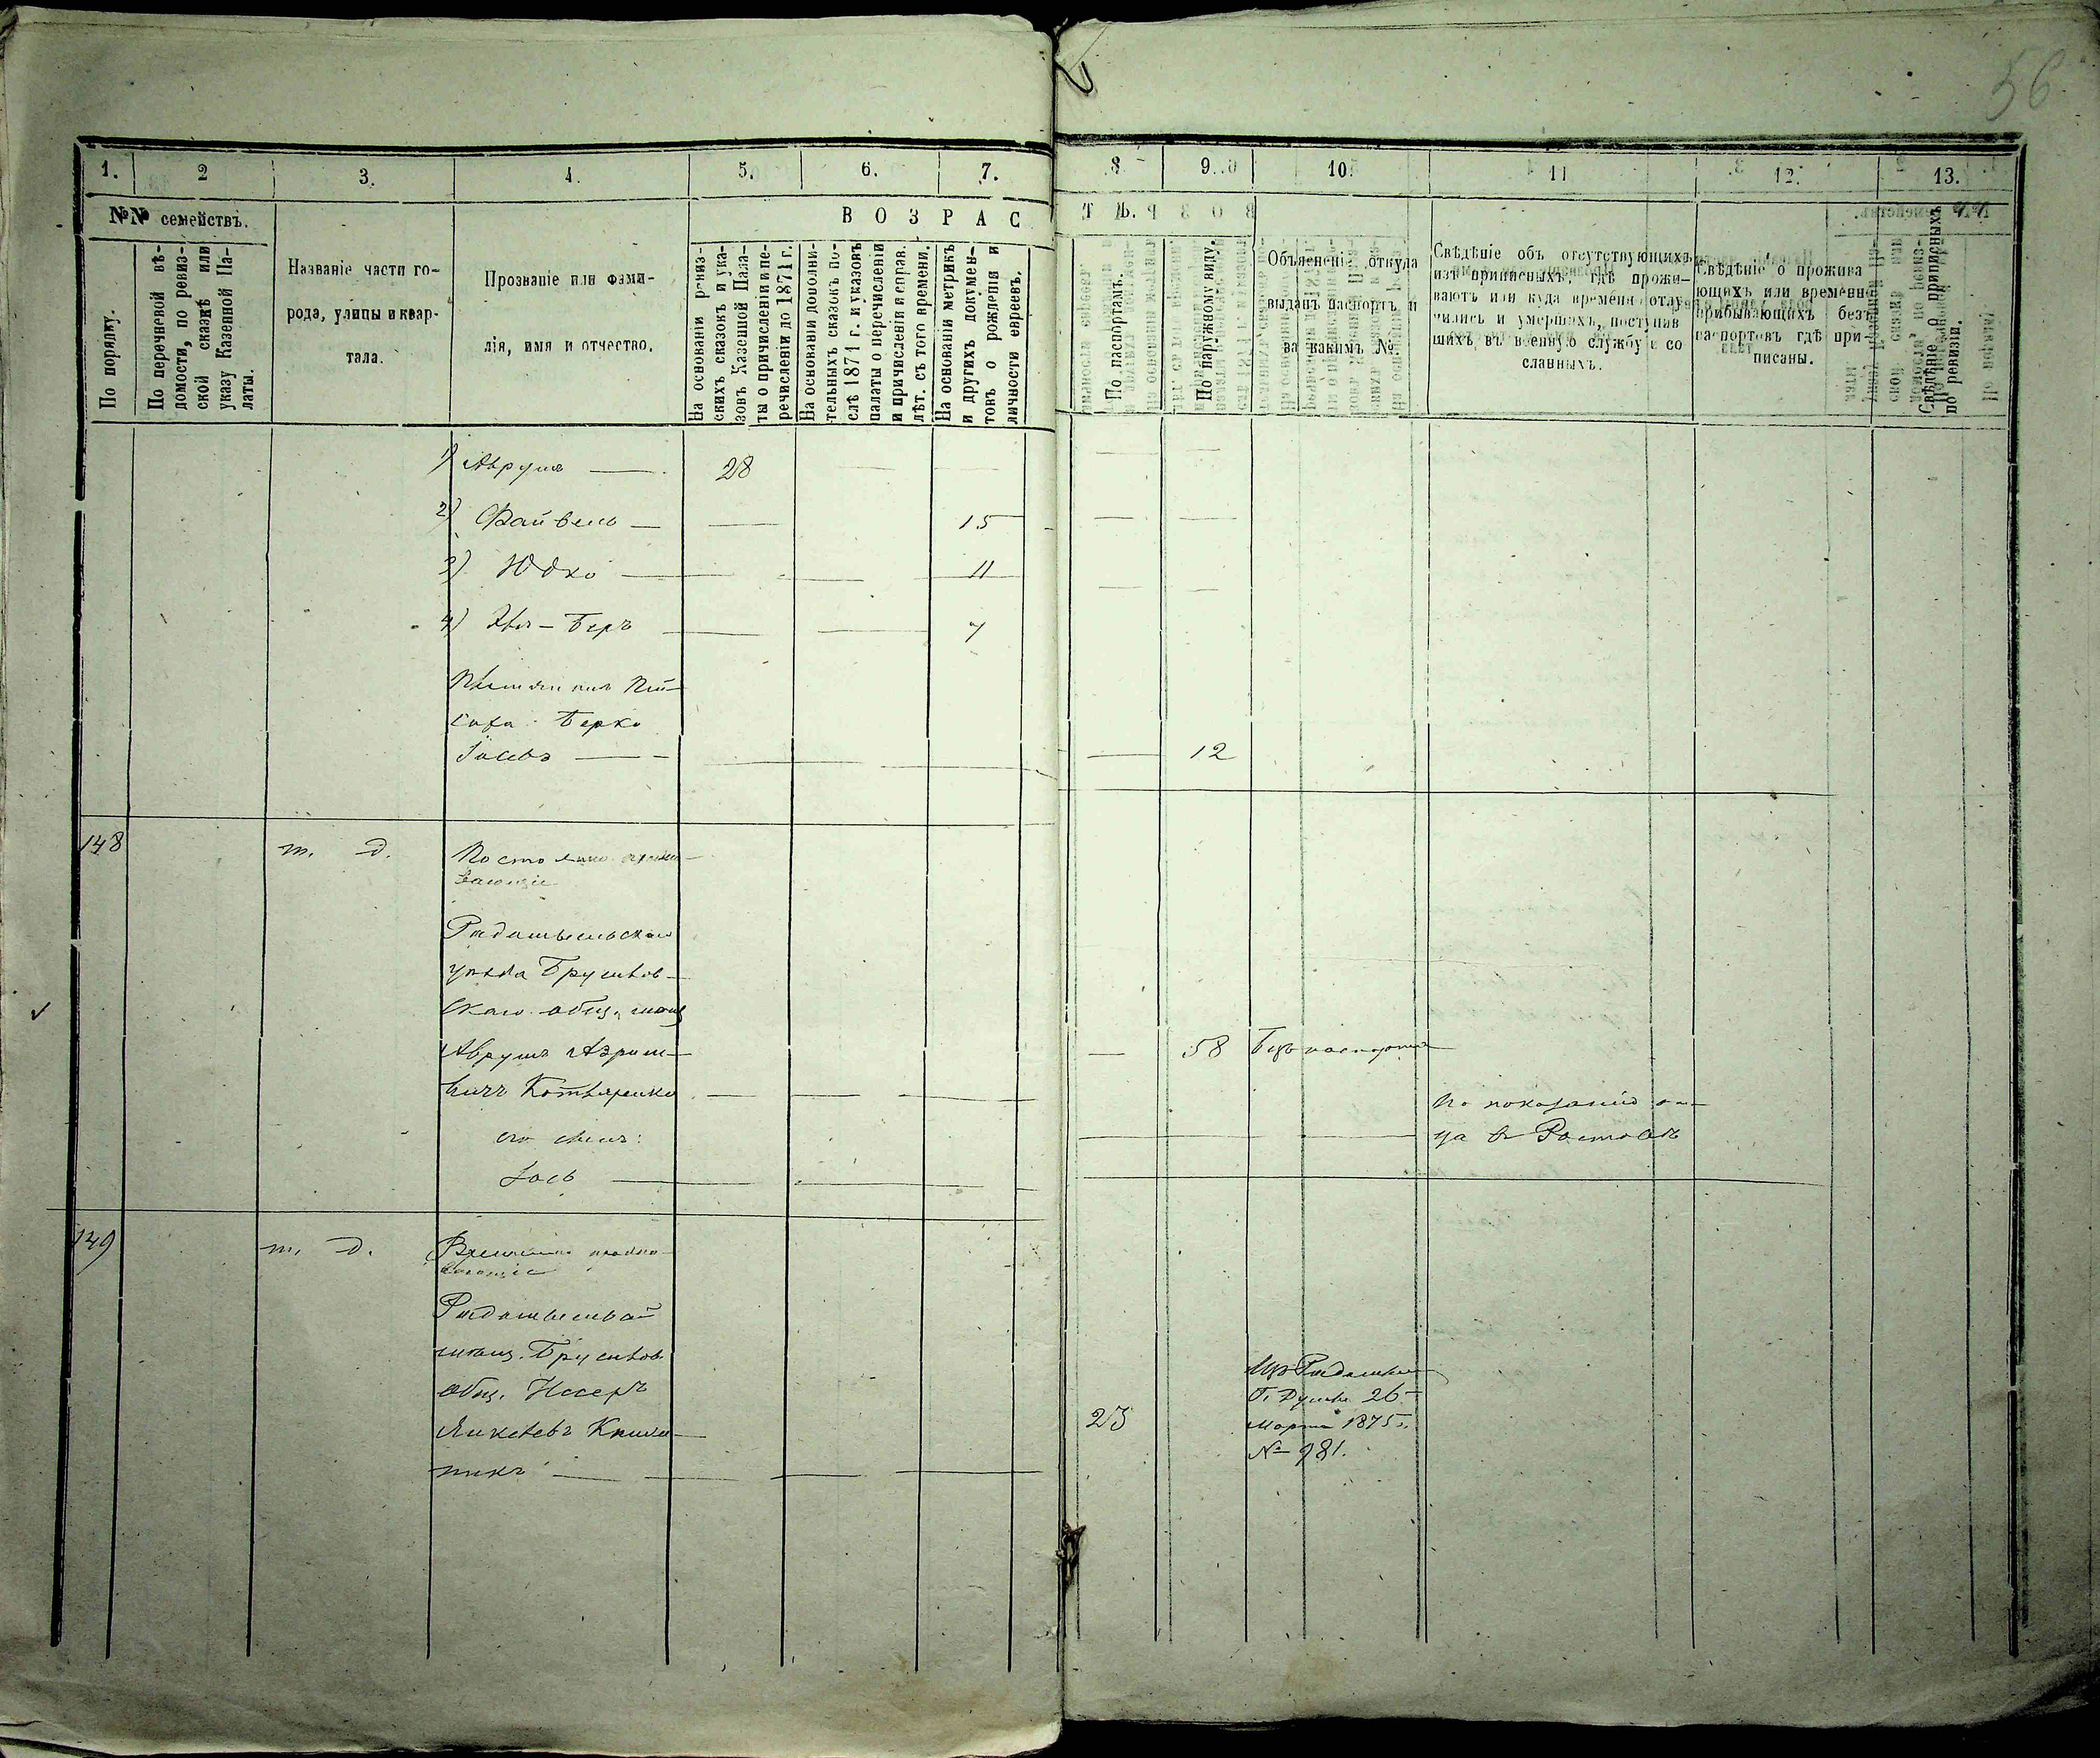 56
1. 2 3. 4. 5. 6. 7. 8 9. 10. 11 12. 13.
№№ семействъ.
По порядку.
По перечневой вѣ-
домости, по ревиз-
ской сказкѣ или
указу Казенной Па-
латы.
Названіе части го-
рода, улицы и квар-
тала.
Прозваніе или фами-
лія, имя и отчество.
В О З Р А С Т Ъ.
На основаніи ревиз-
скихъ сказокъ и ука-
зовъ Казенной Пала-
ты о причисленіи и пе-
речисленіи до 1871 г.
На основаніи дополни-
тельныхъ сказокъ по-
слѣ 1871 г. и указовъ
палаты о перечисленіи
и причисленіи и справ.
лѣт. съ того времени.
На основаніи метрикъ
и другихъ докумен-
товъ о рожденіи и
личности евреевъ.
По паспортамъ.
По наружному виду.
Объясненіе откуда
выданъ паспортъ и
за какимъ №.
Свѣдѣніе объ отсутствующихъ
изъ приписныхъ, гдѣ прожи-
ваютъ или куда времени отлу
чились и умершихъ, поступив
шихъ въ военную службу и со
сланныхъ.
Свѣдѣніе о прожива
ющихъ или временно
прибывающихъ безъ
паспортовъ гдѣ при-
писаны.
Свѣдѣніе о приписныхъ
по ревизіи.
1) Аврумъ — 28
2) Файвель — 15
3) Юдко — 11
4) — Беръ 7
Берко
Іосевъ — 12
148 т. д. Постоянно прожи-
вающіе
Радомысльскаго
уѣзда Брусилов-
скаго общ. мѣщ
Аврумъ — 58 Безъ паспорта
вичъ Котляренко
По показанію от-
его сынъ:
ца въ Ростовѣ
Іось —
149 т. д. Временно прожи-
вающіе
Радомысльскій
мѣщ. Брусилов
общ. Иссеръ
23
Изъ Радомысл
Г. Думы 26
Марта 1875 г.
№ 981.